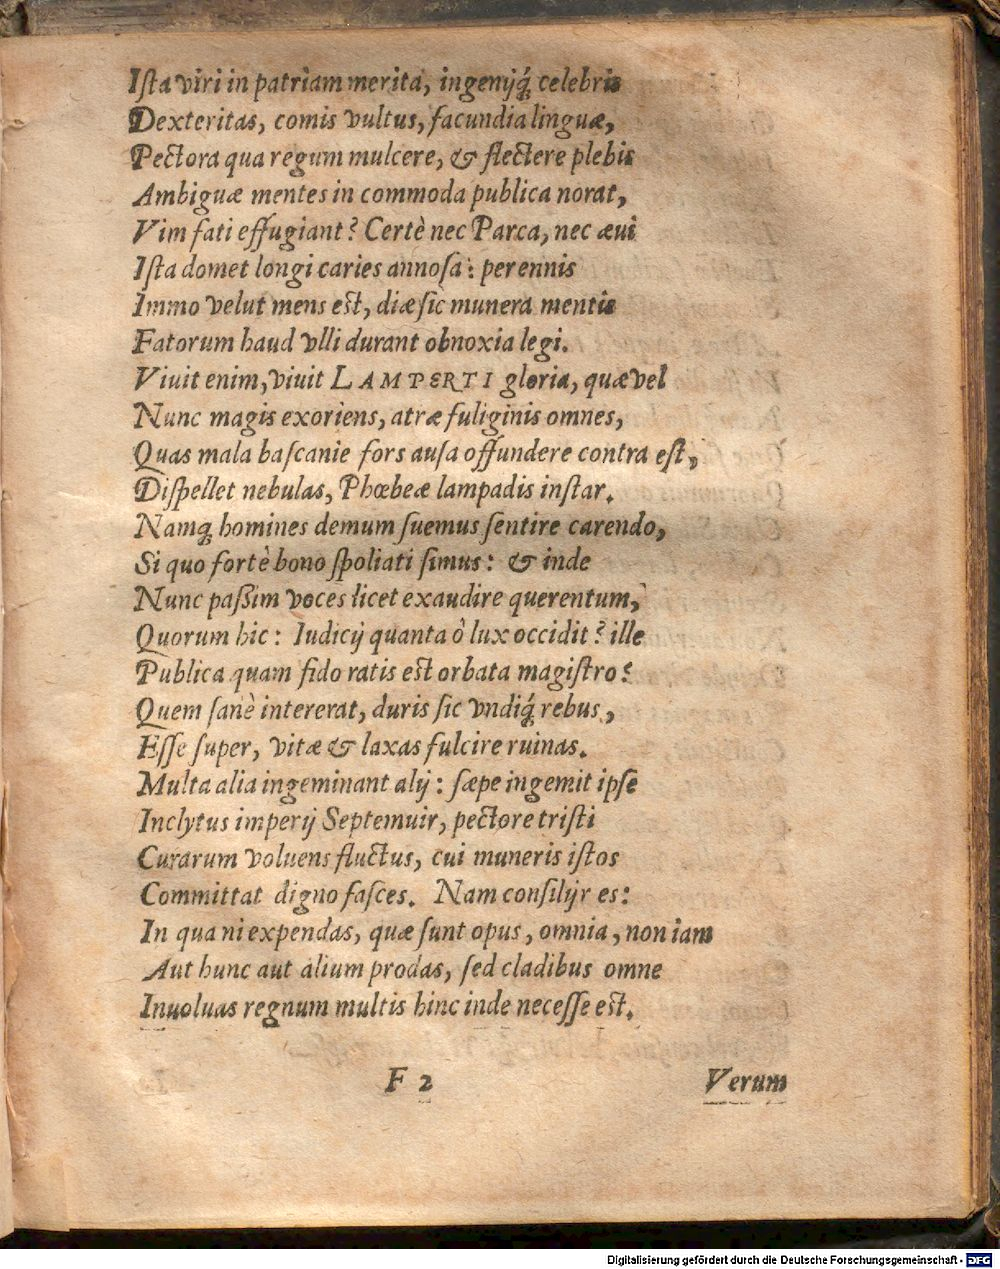 Iſta viri in patriam merita, ingenijq́; celebris
Dexteritas, comis vultus, facundia linguæ,
Pectora qua regum mulcere, & flectere plebis
Ambiguæ mentes in commoda publica norat,
Vim fati effugiant? Certè nec Parca, nec æui
Iſta domet longi caries annoſa: perennis
Immo velut mens est, diæ ſic munera mentis
Fatorum haud vlli durant obnoxia legi.
Viuit enim, viuit LAMPERTI gloria, quæ vel
Nunc magis exoriens, atræ fuliginis omnes,
Quas mala baſcanie fors auſa offundere contra est,
Diſpellet nebulas, Phœbeæ lampadis inſtar.
Namq; homines demum ſuemus ſentire carendo,
Si quo fortè bono ſpoliati ſimus: & inde
Nunc paßim voces licet exaudire querentum,
Quorum hic: Iudicij quanta ò lux occidit? ille
Publica quam fido ratis est orbata magiſtro?
Quem ſanè intererat, duris ſic vndiq́; rebus,
Eſſe ſuper, vitæ & laxas fulcire ruinas.
Multa alia ingeminant alij: ſæpe ingemit ipſe
Inclytus imperij Septemuir, pectore triſti
Curarum voluens fluctus, cui muneris iſtos
Committat digno faſces. Nam conſilijr es:
In qua ni expendas, quæ ſunt opus, omnia, non iam
Aut hunc aut alium prodas, ſed cladibus omne
Inuoluas regnum multis hinc inde neceſſe est.
F 2 Verum
Digitalisierung gefördert durch die Deutsche Forschungsgemeinschaft - DFG